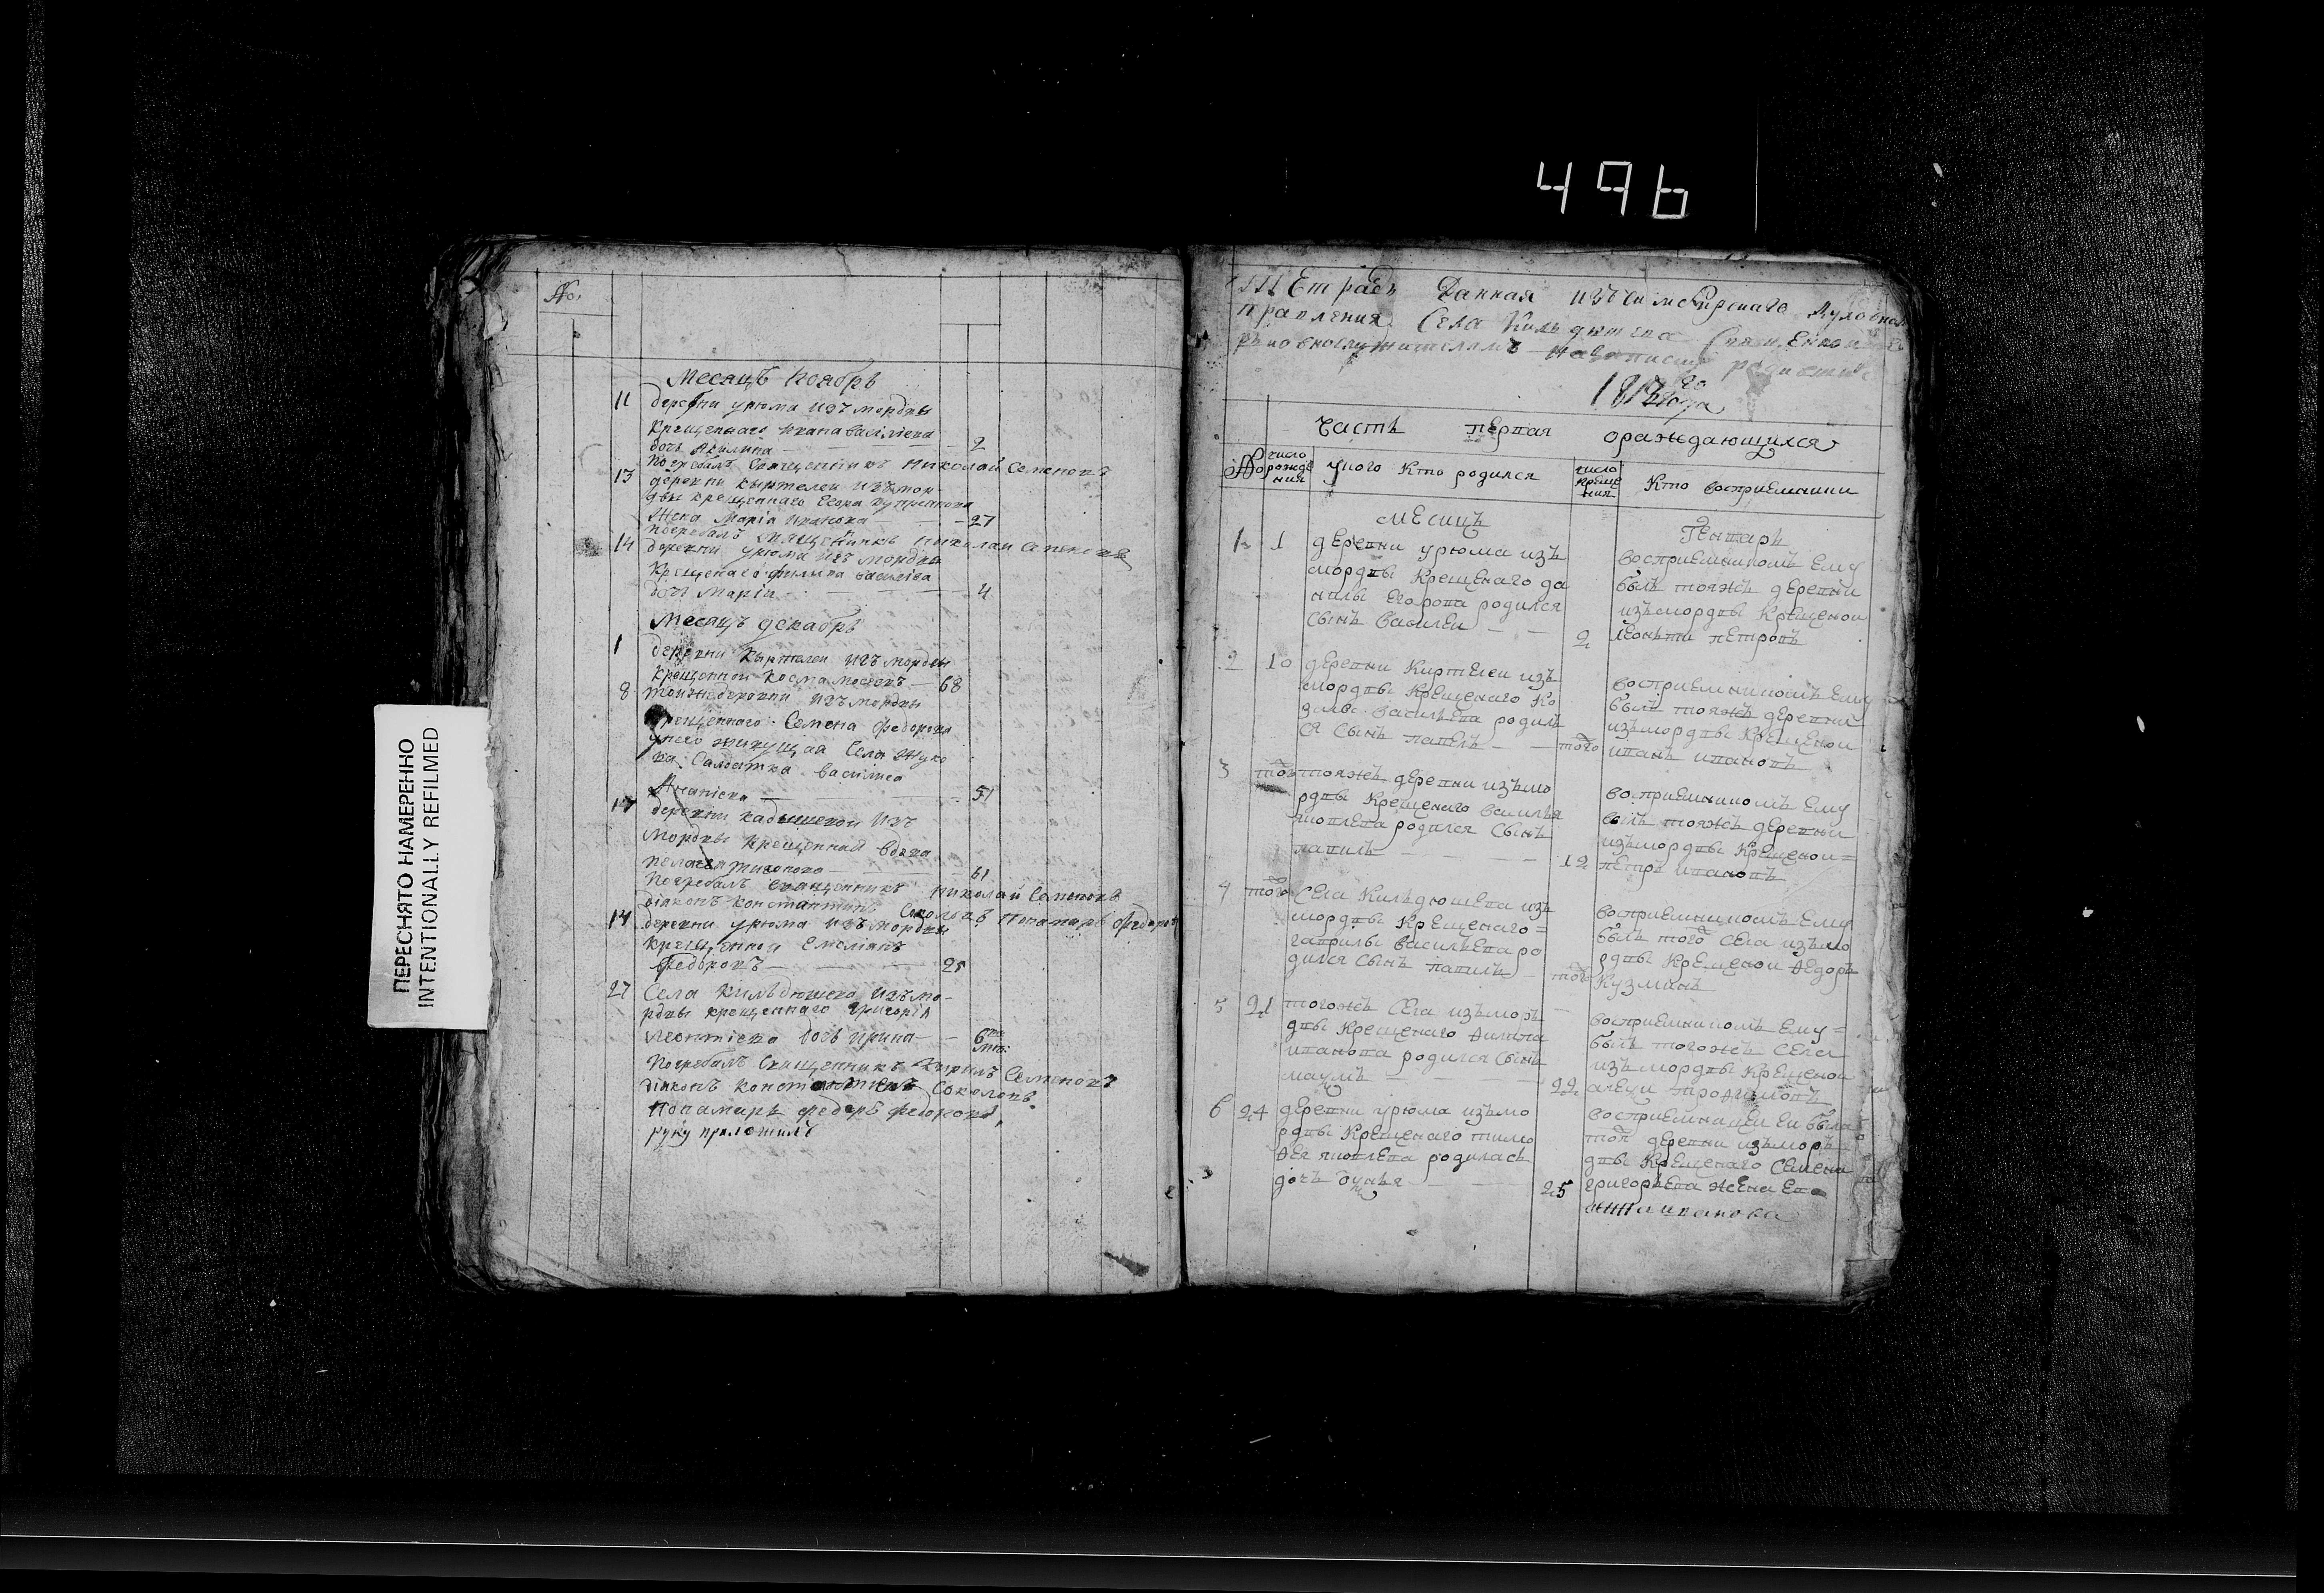 496
ПЕРЕСНЯТО НАМЕРЕННО
INTENTIONALLY REFILMED
№
Месяцъ Ноябрь
11 деревни урюма изъ мордвы
крещеннаго Ивана Васильева
дочь Акилина 2
погребалъ Священникъ Николай Семеновъ
13 деревни кыртелей изъ мор-
двы крещеннаго Егора
Жена Марія Иванова 27
погребалъ Священникъ Николай Семеновъ
14 деревни урюма изъ мордвы
Крещенаго филипа васильва
дочь Марія 4
Месяцъ декабрь
1 деревни Кыртелей изъ мордвы
крещенной Косма 68
8 тоижъ деревни изъ мордвы
крещеннаго Семена Федорова
у него живущая Села Жуко
ва Салдатка василиса
Ананіева 51
17 деревни кадышевой изъ
Мордвы крещенная вдова
Пелагея 61
Погребалъ Священникъ Николай Семеновъ
діаконъ Константинъ Соколовъ Понамарь Федоръ
14 деревни урюма изъ мордвы
крещенной Емеліанъ
Федоровъ 25
27 Села Кильдюшева изъ мо-
рдвы крещеннаго Григорія
Леонтіева дочь Ирина 6
Погребалъ Священникъ Кирилъ Семеновъ
діаконъ Константинъ Соколовъ
Понамарь федоръ федоровъ
руку приложилъ
Тетрадь Данная изъ Симбирскаго Духовнаго
правления Села Кильдюшева Священно и
церковнослужителямъ на записку
1812го года
Часть первая ораждающихся
№ число рождения у кого кто родился число крещения Кто восприемники
месицъ Генварь
1 1 деревни урюма изъ
мордвы Крещенаго да
нилы Егорова родился
сынъ василеи 2
восприемникомъ ему
былъ тояжъ деревни
изъ мордвы Крещеной
леонтии петровъ
2 10 деревни Киртелеи изъ
мордвы Крещенаго Ко
змы васильева родил
ся Сынъ павелъ того
восприемникомъ Ему
былъ тояжъ деревни
изъ мордвы Крещеной
иванъ ивановъ
3 того тояжъ деревни изъ мо
рдвы Крещенаго василья
яковлева родился сынъ
павилъ 12
восприемникомъ Ему
былъ тояжъ деревни
изъ мордвы Крещеной
петръ ивановъ
4 того Села Кильдюшева изъ
мордвы Крещенаго
гаврилы васильева ро
дился сынъ павилъ того
восприемникомъ Ему
былъ того Села изъ мо
рдвы Крещеной Ѳедоръ
Кузминъ
5 21 тогожъ Села изъ мор
двы Крещенаго Ѳилипа
иванова родился сынъ
наумъ 22
восприемникомъ ему
былъ тогожъ села
изъ мордвы Крещеной
алеѯи троѳимовъ
6 24 деревни урюма изъ мо
рдвы Крещенаго тимо
Ѳея яковлева родилась
дочь 25
восприемницеи еи была
той деревни изъ мор
двы Крещенаго Семена
григорьева жена
иванова